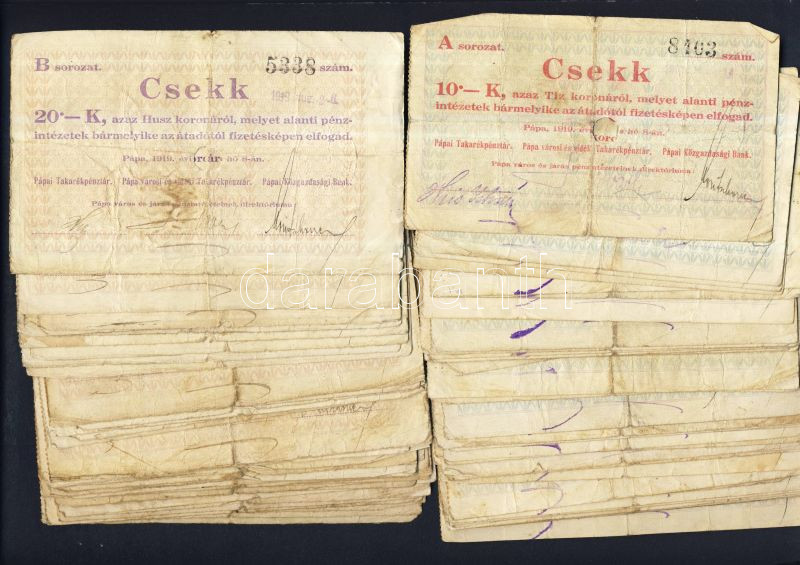 B sorozat. 5338 szám.
Csekk
20·— K, azaz Husz koronáról, melyet alanti pénz-
intézetek bármelyike az átadótól fizetésképen elfogad.
Pápa, 1919. évi hó 8-án.
Pápai Takarékpénztár. Pápa városi és vidéki Takarékpénztár. Pápai Közgazdasági Bank.
Pápa város és járás pénzintézeteinek direktoriuma:
A sorozat. 8403 szám.
Csekk
10·— K, azaz Tiz koronáról, melyet alanti pénz-
intézetek bármelyike az átadótól fizetésképen elfogad.
Pápa, 1919. évi hó 8-án.
Pápai Takarékpénztár. Pápa városi és vidéki Takarékpénztár. Pápai Közgazdasági Bank.
Pápa város és járás pénzintézeteinek direktoriuma:
darabanth